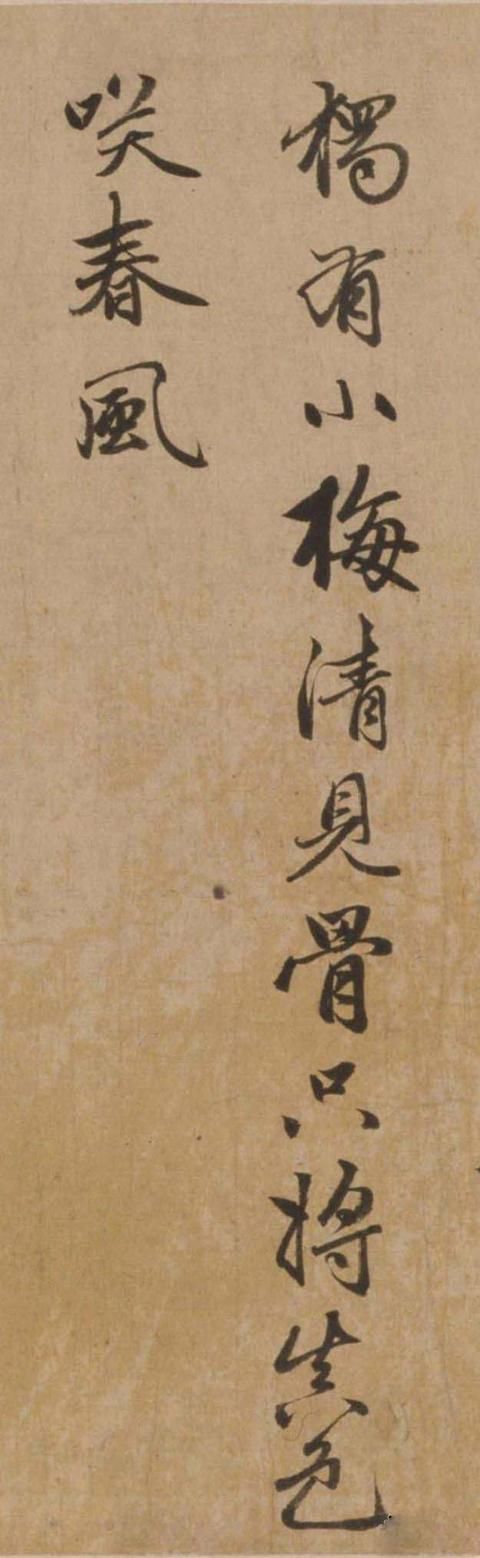 獨有小梅清見骨只將真色
咲春風